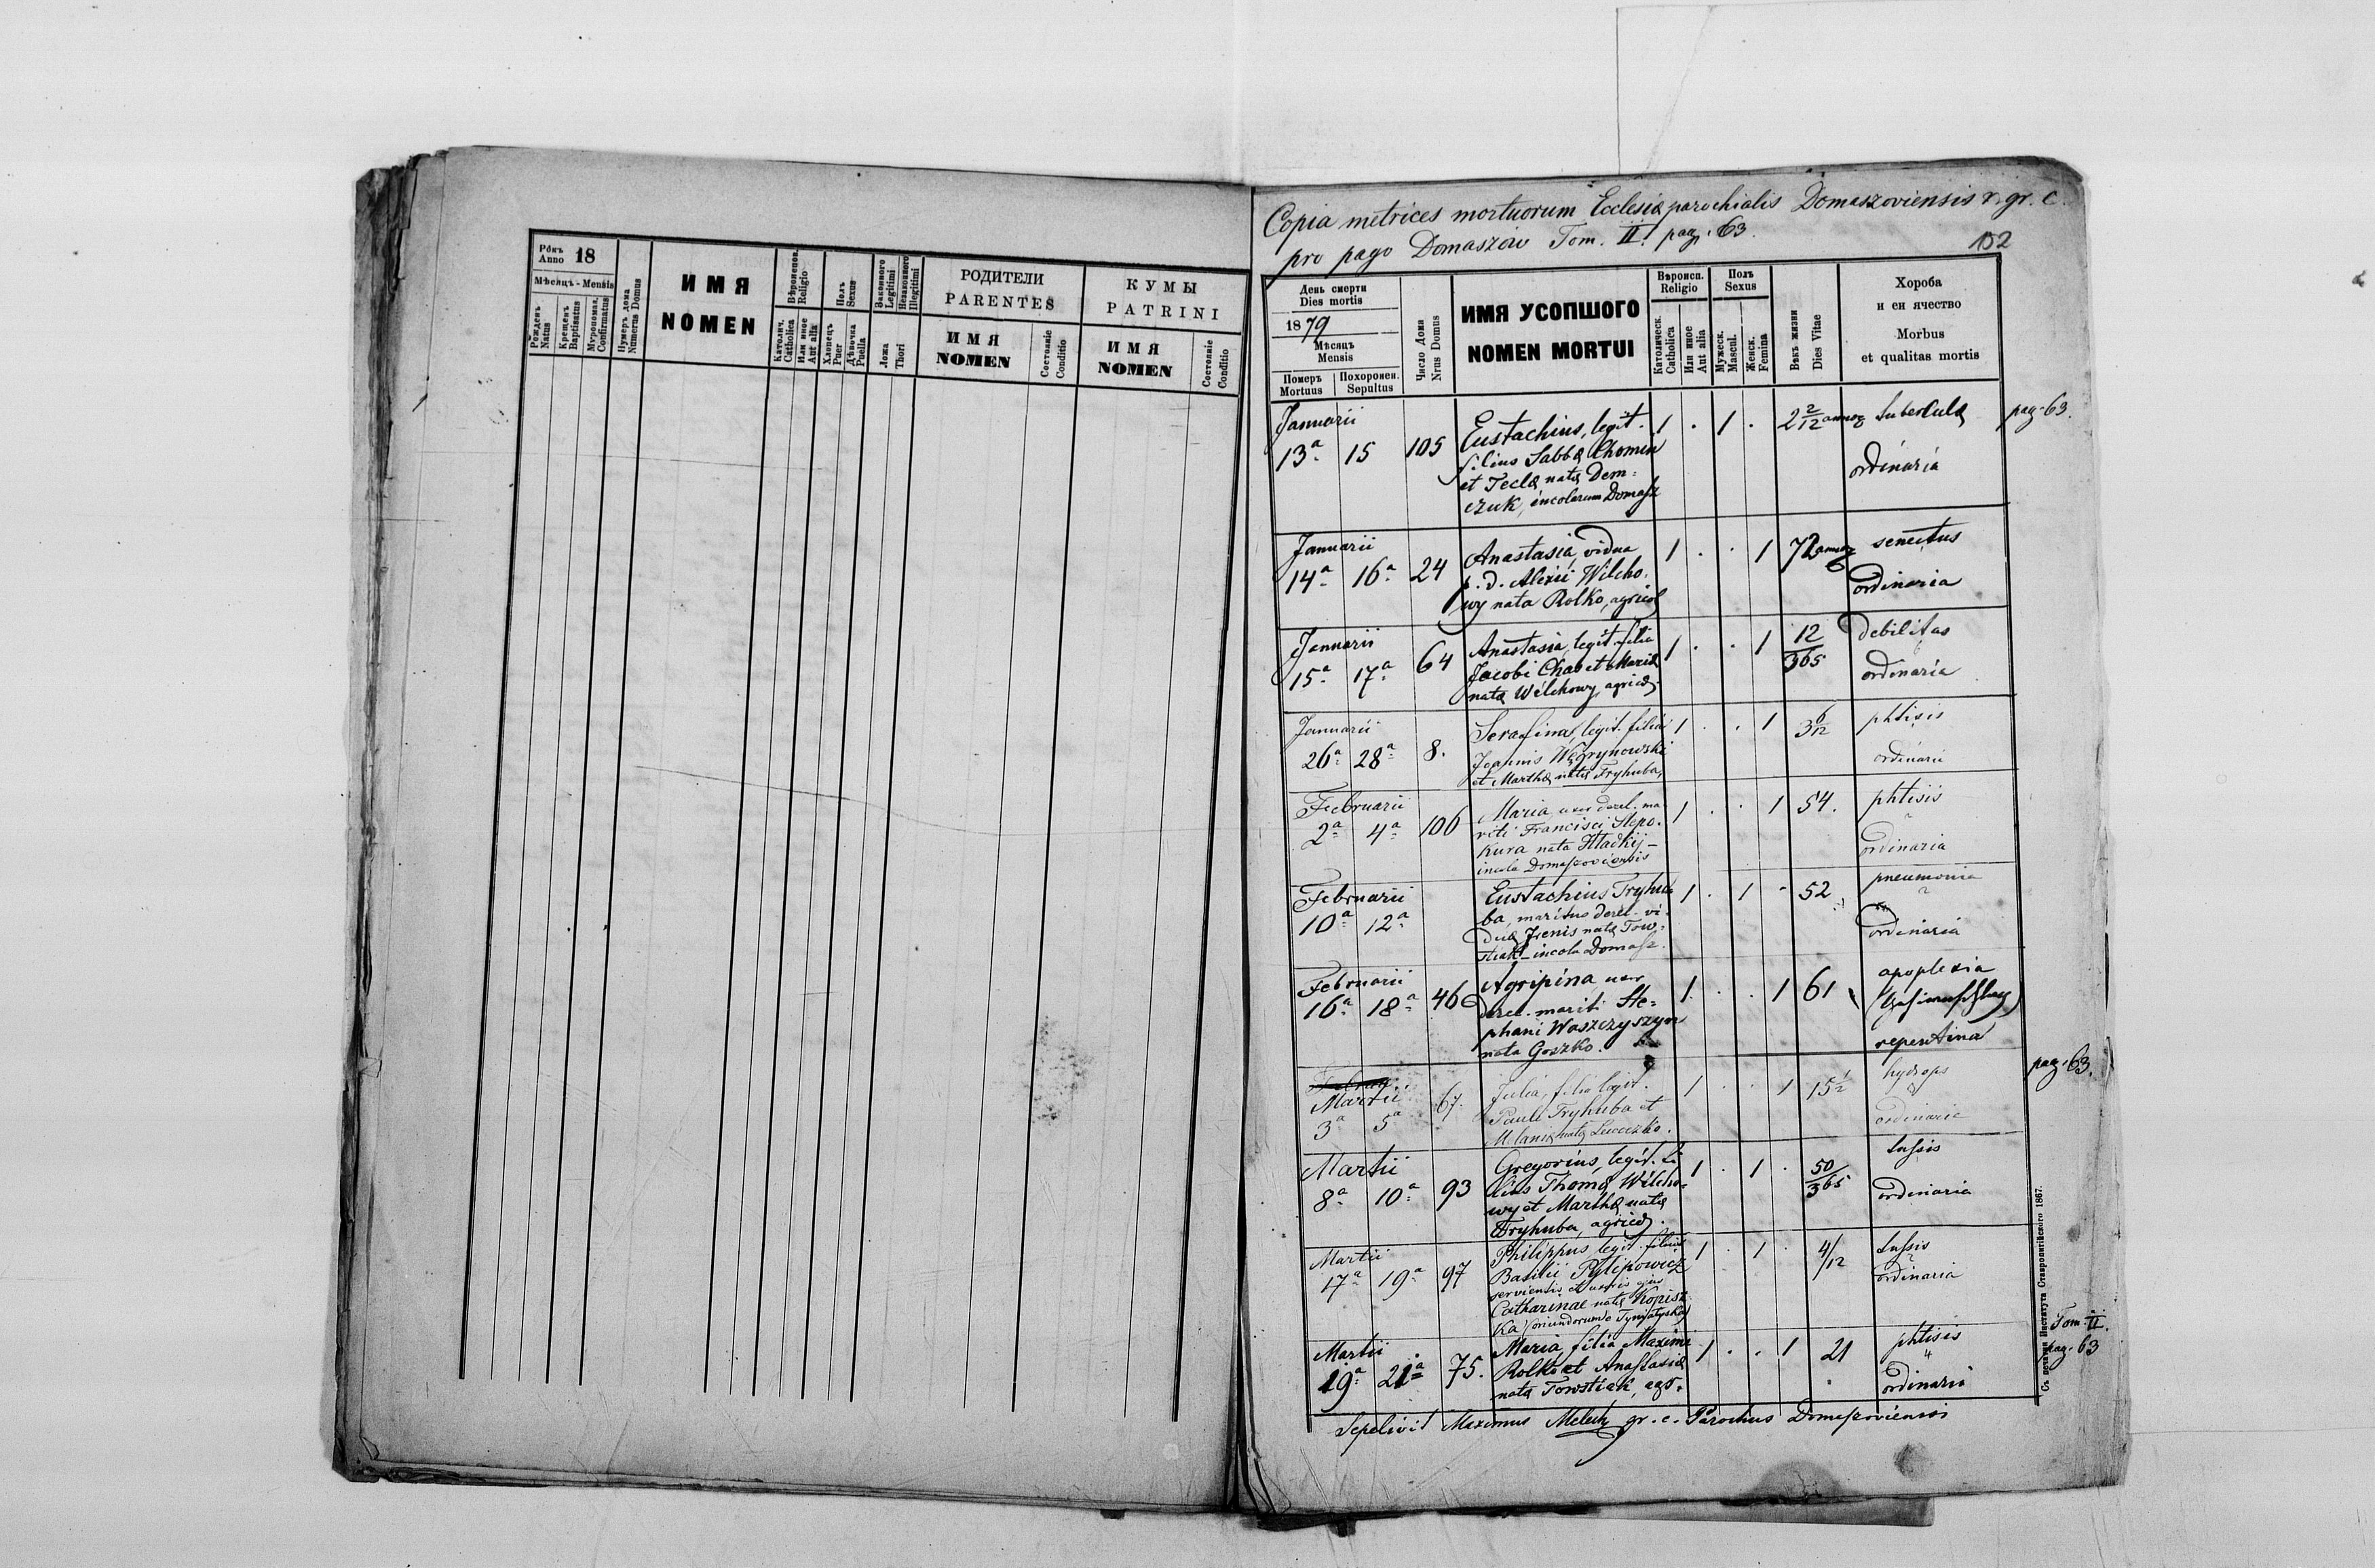 Рокъ
Anno 18
Мѣсяцъ - Mensis
Рожденъ
Natus
Крещенъ
Baptisatus
Мѵропомаз.
Confirmatus
Нумеръ дома
Numerus Domus
ИМЯ
NOMEN
Religio
Католич.
Catholica
Или иное
Aut alia
Полъ
Sexus
Хлопецъ
Puer
Дѣвочка
Puella
Законного
Legitimi
Незаконного
Illegitimi
Ложа
Thori
РОДИТЕЛИ
PARENTES
ИМЯ
NOMEN
Состояніе
Conditio
КУМЫ
PATRINI
ИМЯ
NOMEN
Состояніе
Conditio
Copia metrices mortuorum Ecclesiæ parochialis Domaszoviensis r. gr. c.
pro pago Domaszów Tom. II. pag. 63.
102
День смерти
Dies mortis
1879
Мѣсяцъ
Mensis
Померъ
Mortuus
Похоронен.
Sepultus
Число Дома
Nrus Domus
ИМЯ УСОПШОГО
NOMEN MORTUI
Вѣроисп.
Religio
Католическ.
Catholica
Или иное
Aut alia
Полъ
Sexus
Мужеск.
Mascul.
Женск.
Femina
Вѣкъ жизни
Dies Vitae
Хороба
и еи ячество
Morbus
et qualitas mortis
Januarii
13ª 15 105
Eustachius, legit.
filius Sabbæ Chomin
et Teclæ natæ Dem=
czuk, incolarum Domasz
1 . 1 . 2 2/12 tubercula
ordinaria
pag. 63.
Januarii
14ª 16ª 24
Anastasia, vidua
p. d. Alexii Wilcho.
wy nata Rolko, agricol
1 . . 1 72 senectus
ordinaria
Januarii
15ª 17ª 64
Anastasia, legit. filia
Jacobi Chab et Mariæ
natæ Wilchowy, agricol.
1 . . 1 12/365 debilitas
ordinaria
Januarii
26ª 28ª 8.
Serafina, legit. filia
Joannis Węgrynowski
et Marthæ natæ Tryhuba,
1 . . 1 3 6/12 phtisis
ordinaria
Februarii
2ª 4ª 106
Maria uxor derel. ma
riti Francisci Slepo.
kura nata Hladkij –
incola Domaszoviensis
1 . . 1 54. phtisis
ordinaria
Februarii
10ª 12ª
Eustachius Tryhu
ba, maritus derel. vi.
duæ Irenis natæ Tow=
stiak – incola Domasz.
1 . 1 . 52 pneumonia
ordinaria
Februarii
16ª 18ª 46
Agripina uxor
derel. mariti Ste=
phani Waszczyszyn
nata Goszko.
1 . . 1 61 apoplexia
repentina
Martii
3ª 5ª 67.
Julia, filia legit.
Pauli Tryhuba et
Melaniæ natæ
1 . . 1 15 1/2 hydrops
ordinaria
pag. 63.
Martii
8ª 10ª 93
Gregorius, legit. fi
lius Thomæ Wilcho=
wy et Marthæ natæ
Tryhuba, agricol.
1 . 1 . 50/365 tussis
ordinaria
Martii
17ª 19ª 97
Philippus, legit. filius
Basilii Pylipowicz
servientis et uxoris ejus
Catharinae natæ Kopisz
ka
1 . 1 . 4/12 tussis
ordinaria
Martii
19ª 21ª 75.
Maria, filia Maximi
Rolko et Anastasiæ
natæ Towstiak, agr.
1 . . 1 21 phtisis
ordinaria
Tom. II.
pag. 63
Sepelivit Maximus gr. c. Parochus Domaszoviensis
Съ печатни Института Ставропигійского 1867.